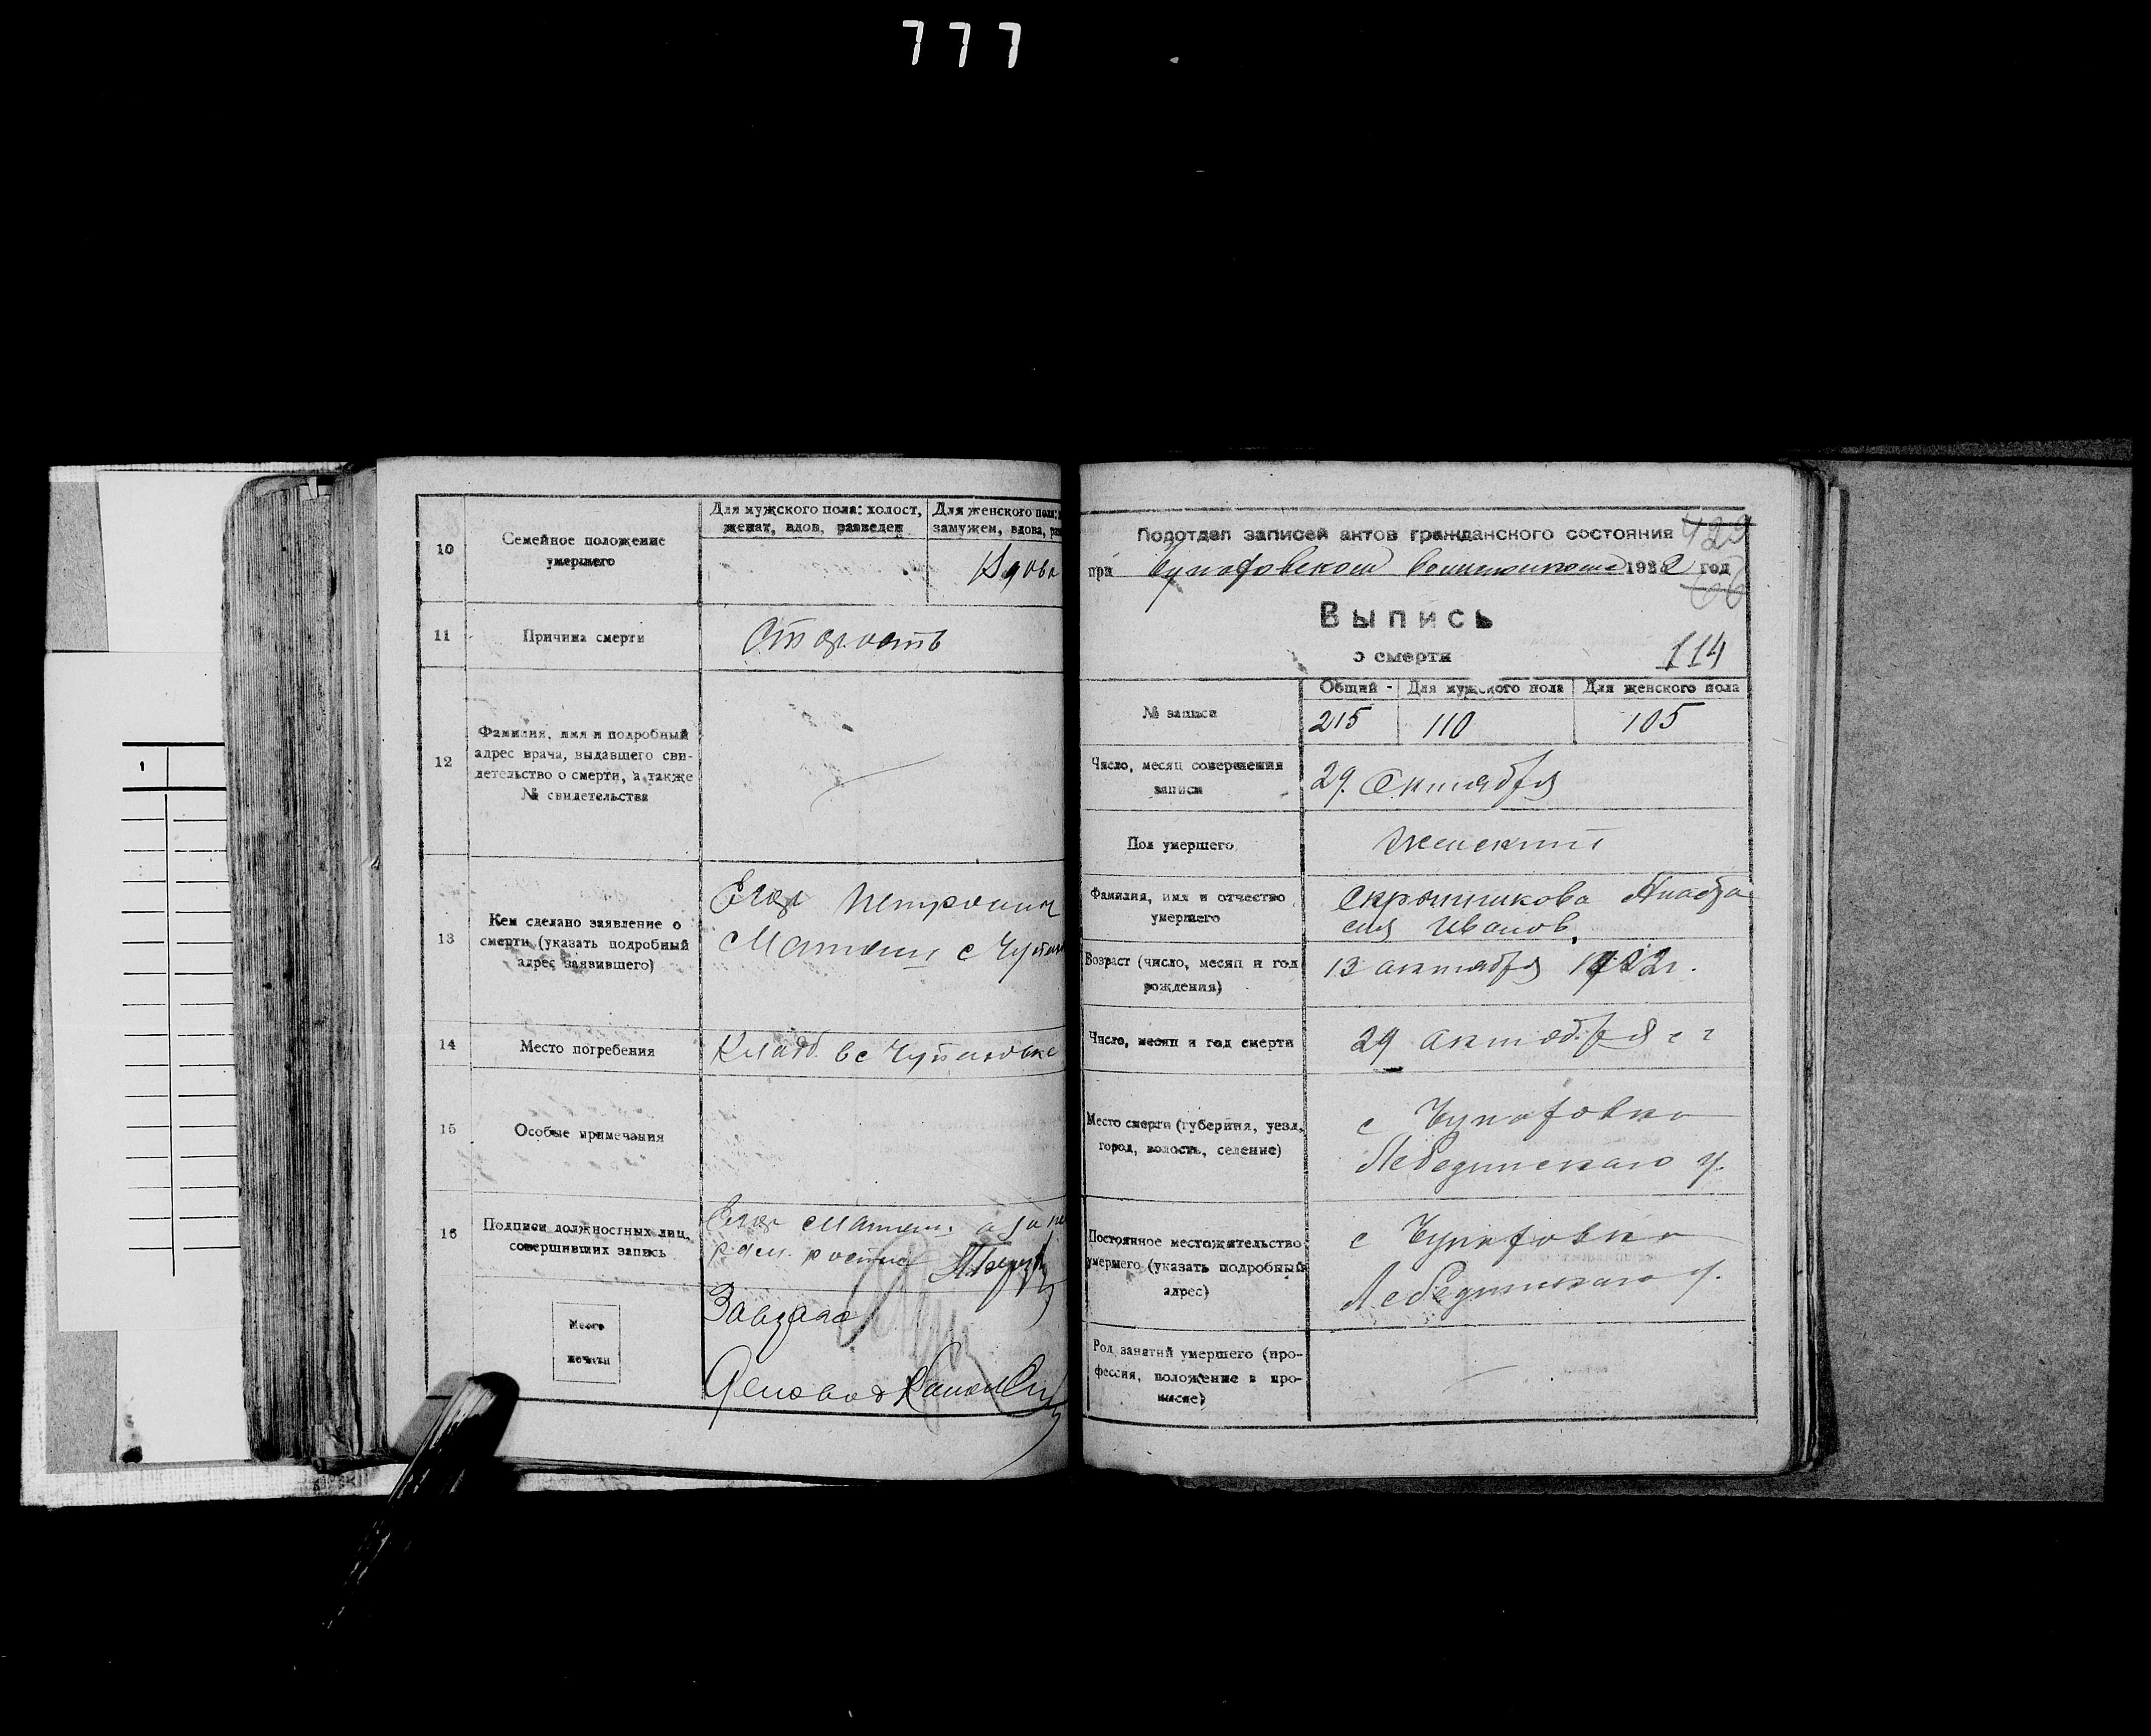 777
10
Семейное положение
умершего
Для мужского пола: холост,
женат, вдов, разведен
Для женского пола:
замужем, вдова,
Вдова
11
Причина смерти
Старость
12
Фамилия, имя и подробный
адрес врача, выдавшего сви-
детельство о смерти, а также
№ свидетельства
13
Кем сделано заявление о
смерти (указать подробный
адрес заявившего)
с
14
Место погребения
Кладб. в с
15
Особые примечания
16
Подписи должностных лиц,
совершивших запись
Место
печати
Подотдел записей актов гражданского состояния
429
при Чупаховском 1922 год
66
Выпись
о смерти
114
№ записи
Общий
Для мужского пола
Для женского пола
215
110
105
Число, месяц совершения
записи
29. Октября
Пол умершего
женский
Фамилия, имя и отчество
умершего
Иванов.
Возраст (число, месяц и год
рождения)
13 октября
Число, месяц и год смерти
29 октября с г
Место смерти (губерния, уезд,
город, волость, селение)
с Чупаховка
Лебединскаго у.
Постоянное местожительство
умершего (указать подробный
адрес)
с Чупаховка
Лебединскаго у.
Род занятий умершего (про-
фессия, положение в про-
мысле)